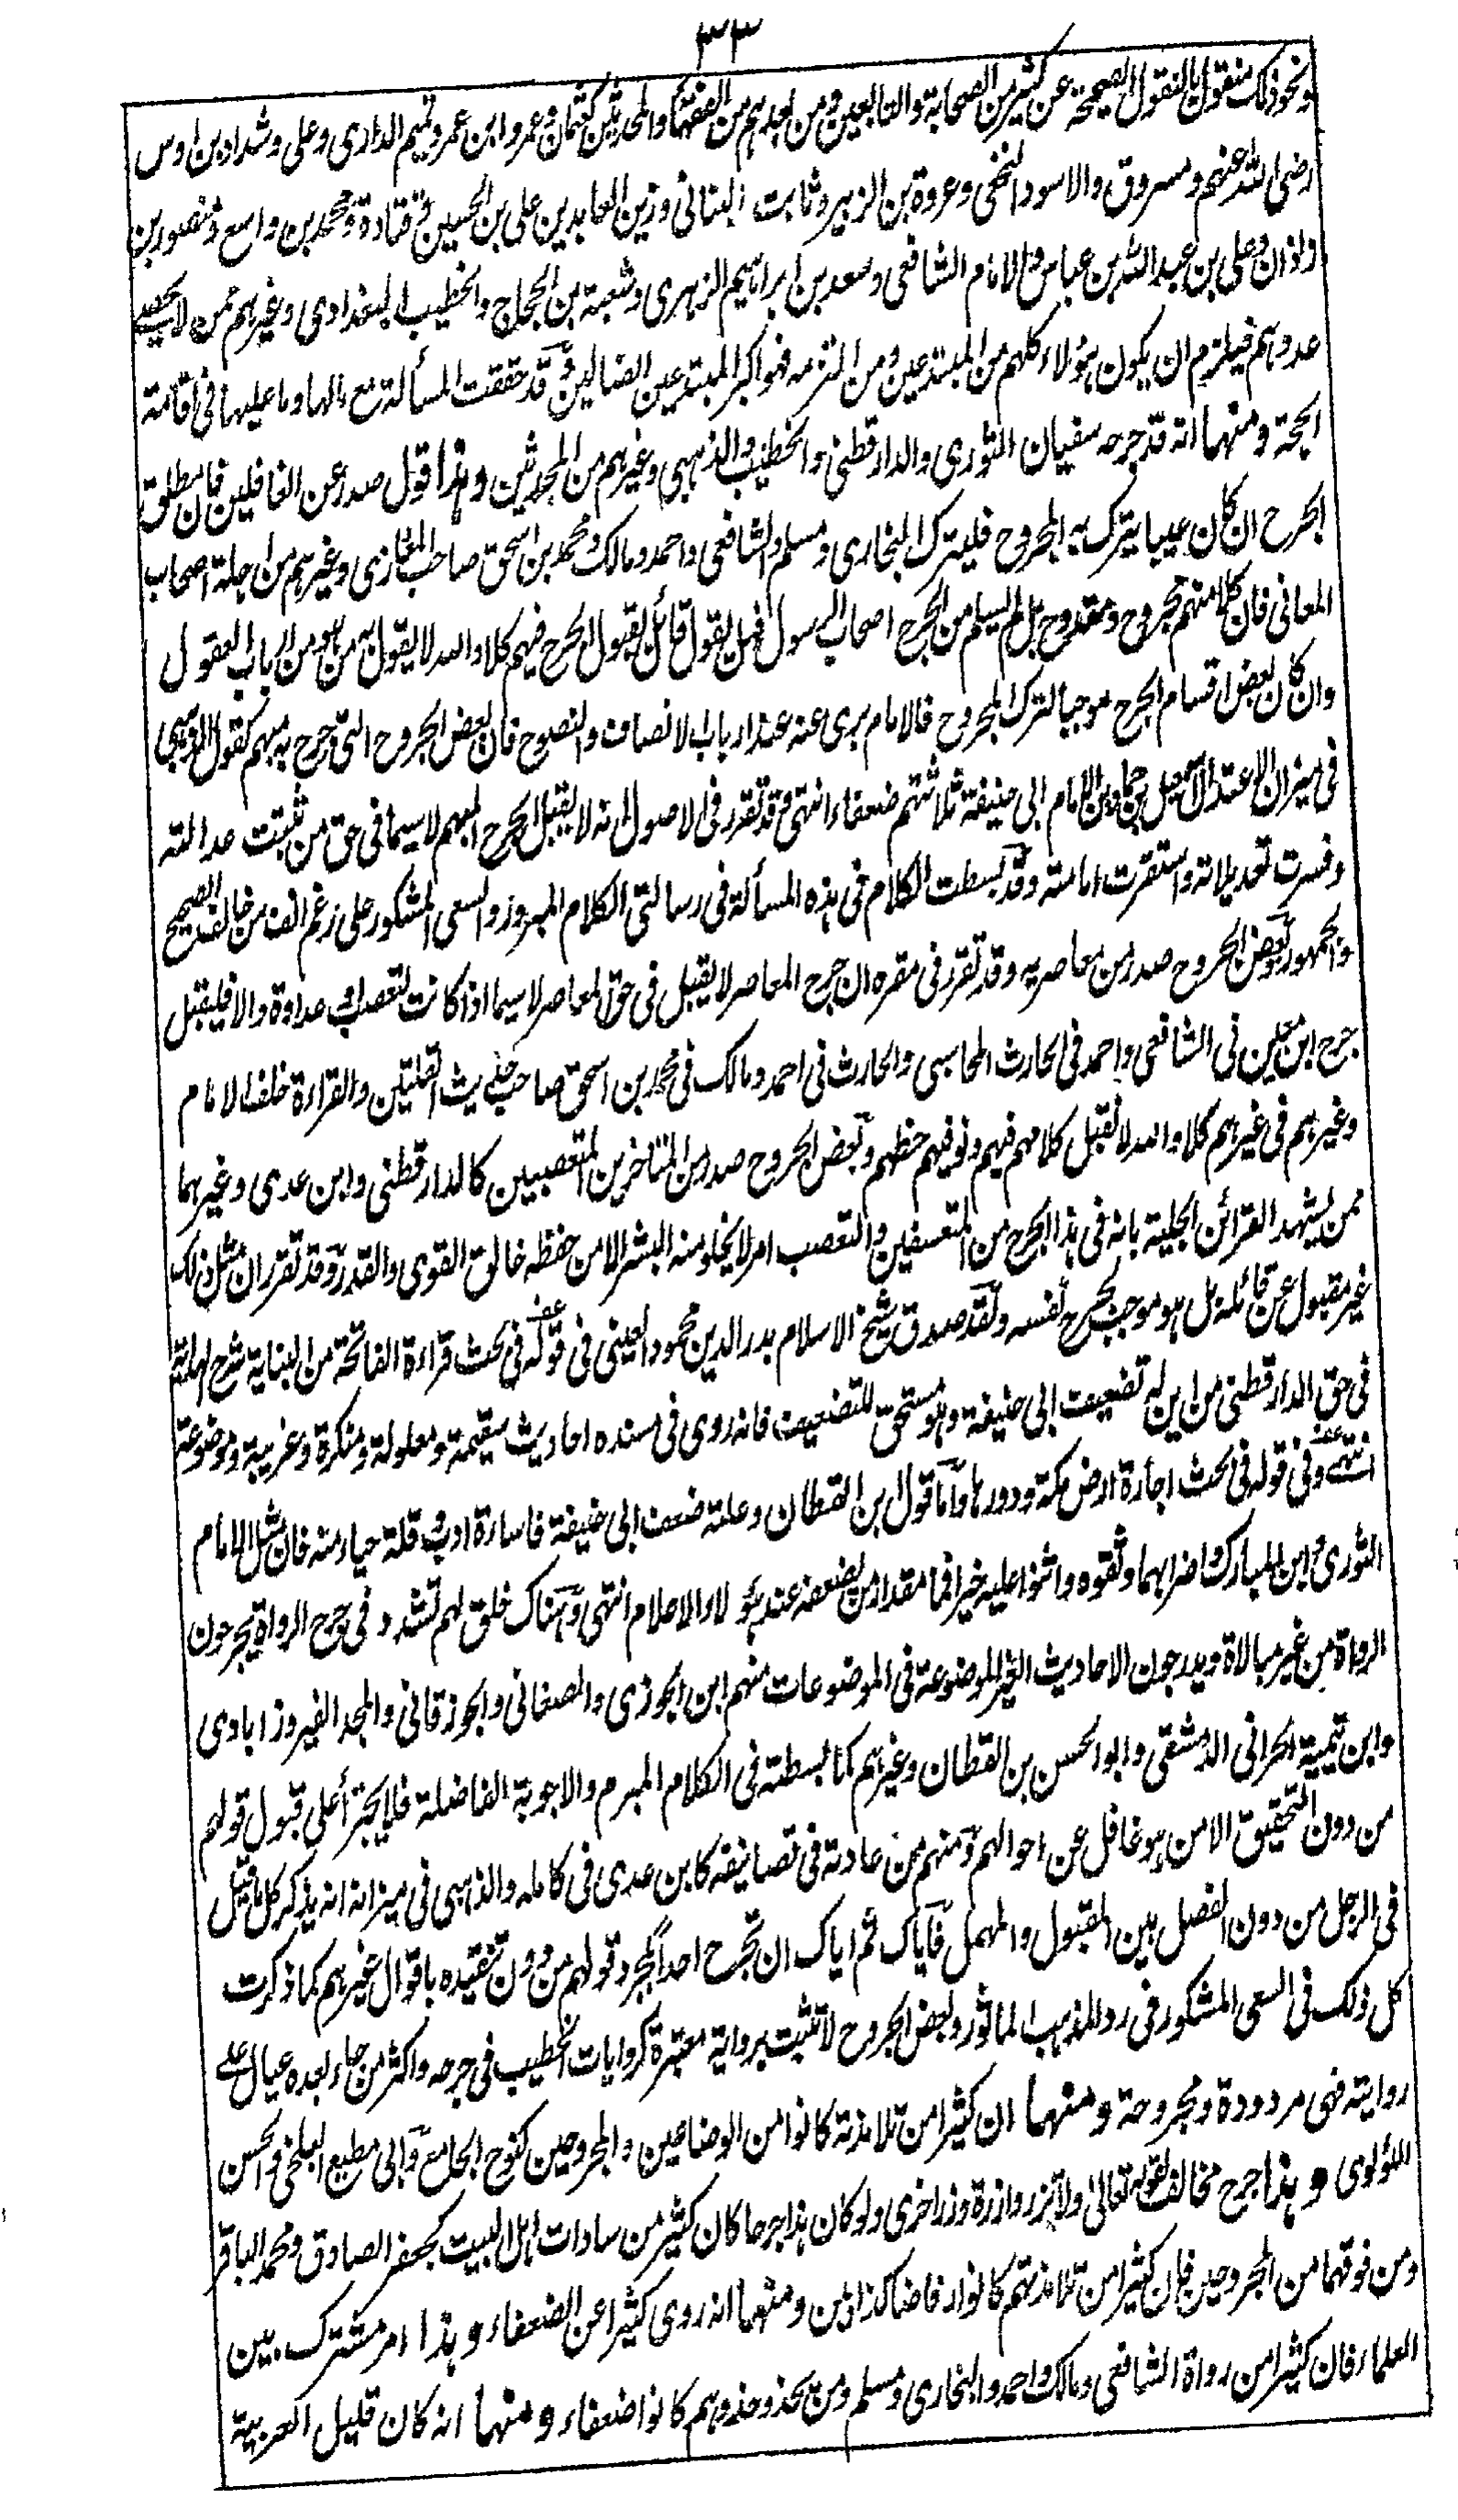 ٣٣
ونحو ذلك منقول بالنقول الصحيحة عن كثير من الصحابة والتابعين ومن بعدهم من الفقهاء والمحدثين كعثمان وعمر وابن عمر وتميم الداري وعلي وشداد بن اوس
رضي الله عنهم ومسروق والاسود النخعي وعروة بن الزبير وثابت البناني وزين العابدين علي بن الحسين وقتادة ومحمد بن واسع ومنصور بن
زاذان وعلي بن عبد الله بن عباس والامام الشافعي وسعد بن ابراهيم الزهري وشعبة بن الحجاج والخطيب البغدادي وغيرهم ممن لا يحصى
عددهم فيلزم ان يكون هؤلاء كلهم من المبتدعين ومن التزمه فهو اكبر المبتدعين الضالين وقد حققت المسألة مع مالها وما عليها في اقامة
الحجة ومنها انه قد جرحه سفيان الثوري والدارقطني والخطيب والذهبي وغيرهم من المحدثين وهذا قول صدر عن الغافلين فان مطلق
الجرح ان كان عيبا يترك به المجروح فليترك البخاري ومسلم والشافعي واحمد ومالك ومحمد بن اسحق صاحب المغازي وغيرهم من اجلة اصحاب
المعاني فان كلا منهم مجروح ومقدوح بل لم يسلم من الجرح اصحاب الرسول فهل يقول قائل بقبول الجرح فيهم كلا والله لا يقول به من هو من ارباب العقول
وان كان بعض اقسام الجرح موجبا لترك المجروح فالامام بري عنه عند ارباب الانصاف والنصوح فان بعض الجروح التي جرح به مبهم كقول الذهبي
في ميزان الاعتدال اسمعيل بن حماد بن الامام ابي حنيفة ثلاثتهم ضعفاء انتهى وقد تقرر في الاصول انه لا يقبل الجرح المبهم لا سيما في حق من ثبتت عدالته
وفسرت تعديلاته واستقرت امامته وقد بسطت الكلام في هذه المسألة في رسالتي الكلام المبرور والسعي المشكور على رغم انف من خالف الصحيح
والجمهور وبعض الجروح صدر من معاصريه وقد تقرر في مقره ان جرح المعاصر لا يقبل في حق المعاصر لا سيما اذا كانت لتعصب او عداوة والا فليقبل
جرح ابن معين في الشافعي واحمد في الحارث المحاسبي والحارث في احمد ومالك في محمد بن اسحق صاحب حديث القلتين والقراءة خلف الامام
وغيرهم في غيرهم كلا والله لا نقبل كلامهم فيهم ونوفيهم حظهم وبعض الجروح صدر من المتاخرين المتعصبين كالدارقطني وابن عدي وغيرهما
ممن يشهد القرائن الجلية بانه في هذا الجرح من المتعسفين والتعصب امر لا يخلو منه البشر الا من حفظه خالق القوى والقدر وقد تقرر ان مثل ذلك
غير مقبول عن قائله بل هو موجب لجرح نفسه ولقد صدق شيخ الاسلام بدر الدين محمود العيني في قوله في بحث قراءة الفاتحة من البناية شرح الهداية
في حق الدارقطني من اين له تضعيف ابي حنيفة وهو مستحق للتضعيف فانه روى في مسنده احاديث سقيمة ومعلولة ومنكرة وغريبة وموضوعة
انتهى وفي قوله في بحث اجارة ارض مكة ودورها واما قول ابن القطان وعلته ضعف ابي حنيفة فاساءة ادب وقلة حياء منه فان مثل الامام
الثوري وابن المبارك واضرابهما وثقوه واثنوا عليه خيرا فما مقدار من يضعفه عند هؤلاء الاعلام انتهى وهناك خلق لهم تشدد في جرح الرواة يجرحون
الرواة من غير مبالاة ويدرجون الاحاديث الغير الموضوعة في الموضوعات منهم ابن الجوزي والصغاني والجوزقاني والمجد الفيروزابادي
وابن تيمية الحراني الدمشقي وابو الحسن بن القطان وغيرهم كما بسطته في الكلام المبرم والاجوبة الفاضلة فلا يجترأ على قبول قولهم
من دون التحقيق الا من هو غافل عن احوالهم ومنهم من عادته في تصانيفه كابن عدي في كامله والذهبي في ميزانه انه يذكر كل ما قيل
في الرجل من دون الفصل بين المقبول والمهمل فاياك ثم اياك ان تجرح احدا بمجرد قولهم من دون تنقيده باقوال غيرهم كما ذكرت
كل ذلك في السعي المشكور في رد المذهب الماثور وبعض الجروح لا تثبت برواية معتبرة كروايات الخطيب في جرحه واكثر من جاء بعده عيال على
روايته فهي مردودة ومجروحة ومنها ان كثيرا من تلامذته كانوا من الوضاعين والمجروحين كنوح الجامع وابي مطيع البلخي والحسن
اللؤلوي وهذا جرح مخالف لقوله تعالى ولا تزر وازرة وزر اخرى ولو كان هذا جرحا كان كثير من سادات اهل البيت كجعفر الصادق ومحمد الباقر
ومن فوقهما من المجروحين فان كثيرا من تلامذتهم كانوا رفاضا كذابين ومنها انه روى كثيرا عن الضعفاء وهذا امر مشترك بين
العلماء فان كثيرا من رواة الشافعي ومالك واحمد والبخاري ومسلم ومن يحذو حذوهم كانوا ضعفاء ومنها انه كان قليل العربية